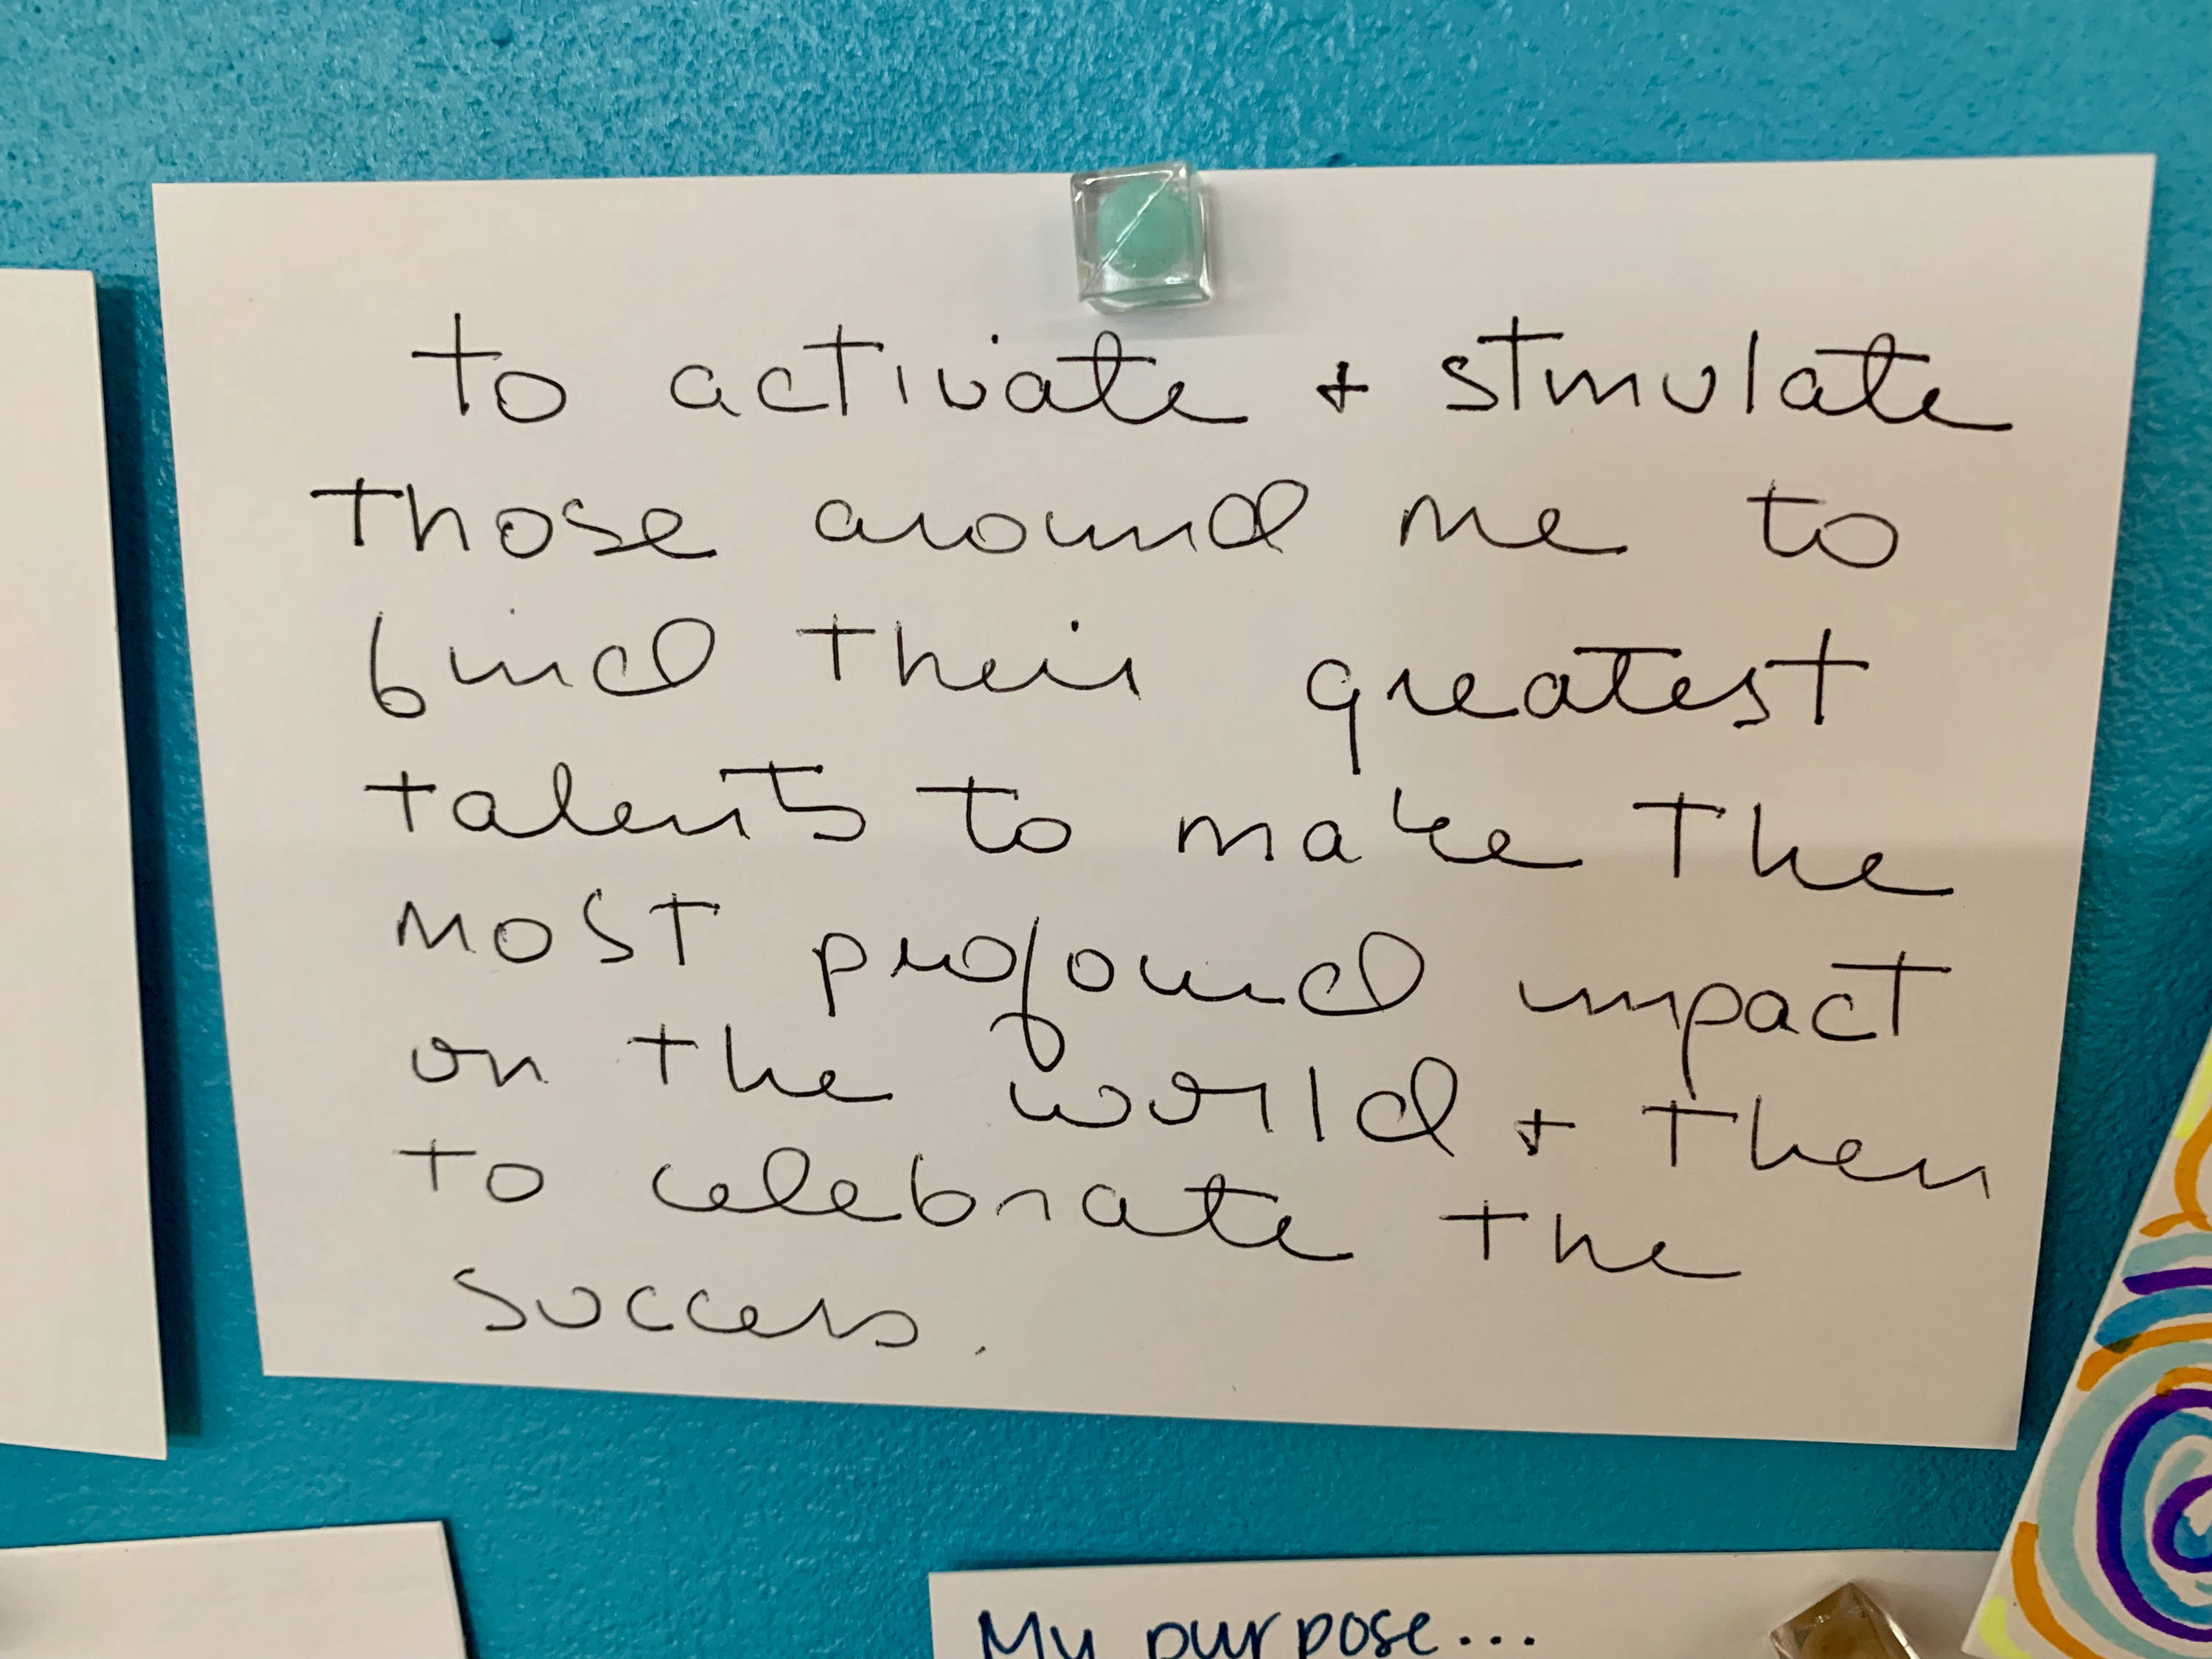 to activate + stimulate
those around me to
find their greatest
talents to make the
most profound impact
on the world + then
to celebrate the
success.
My purpose...